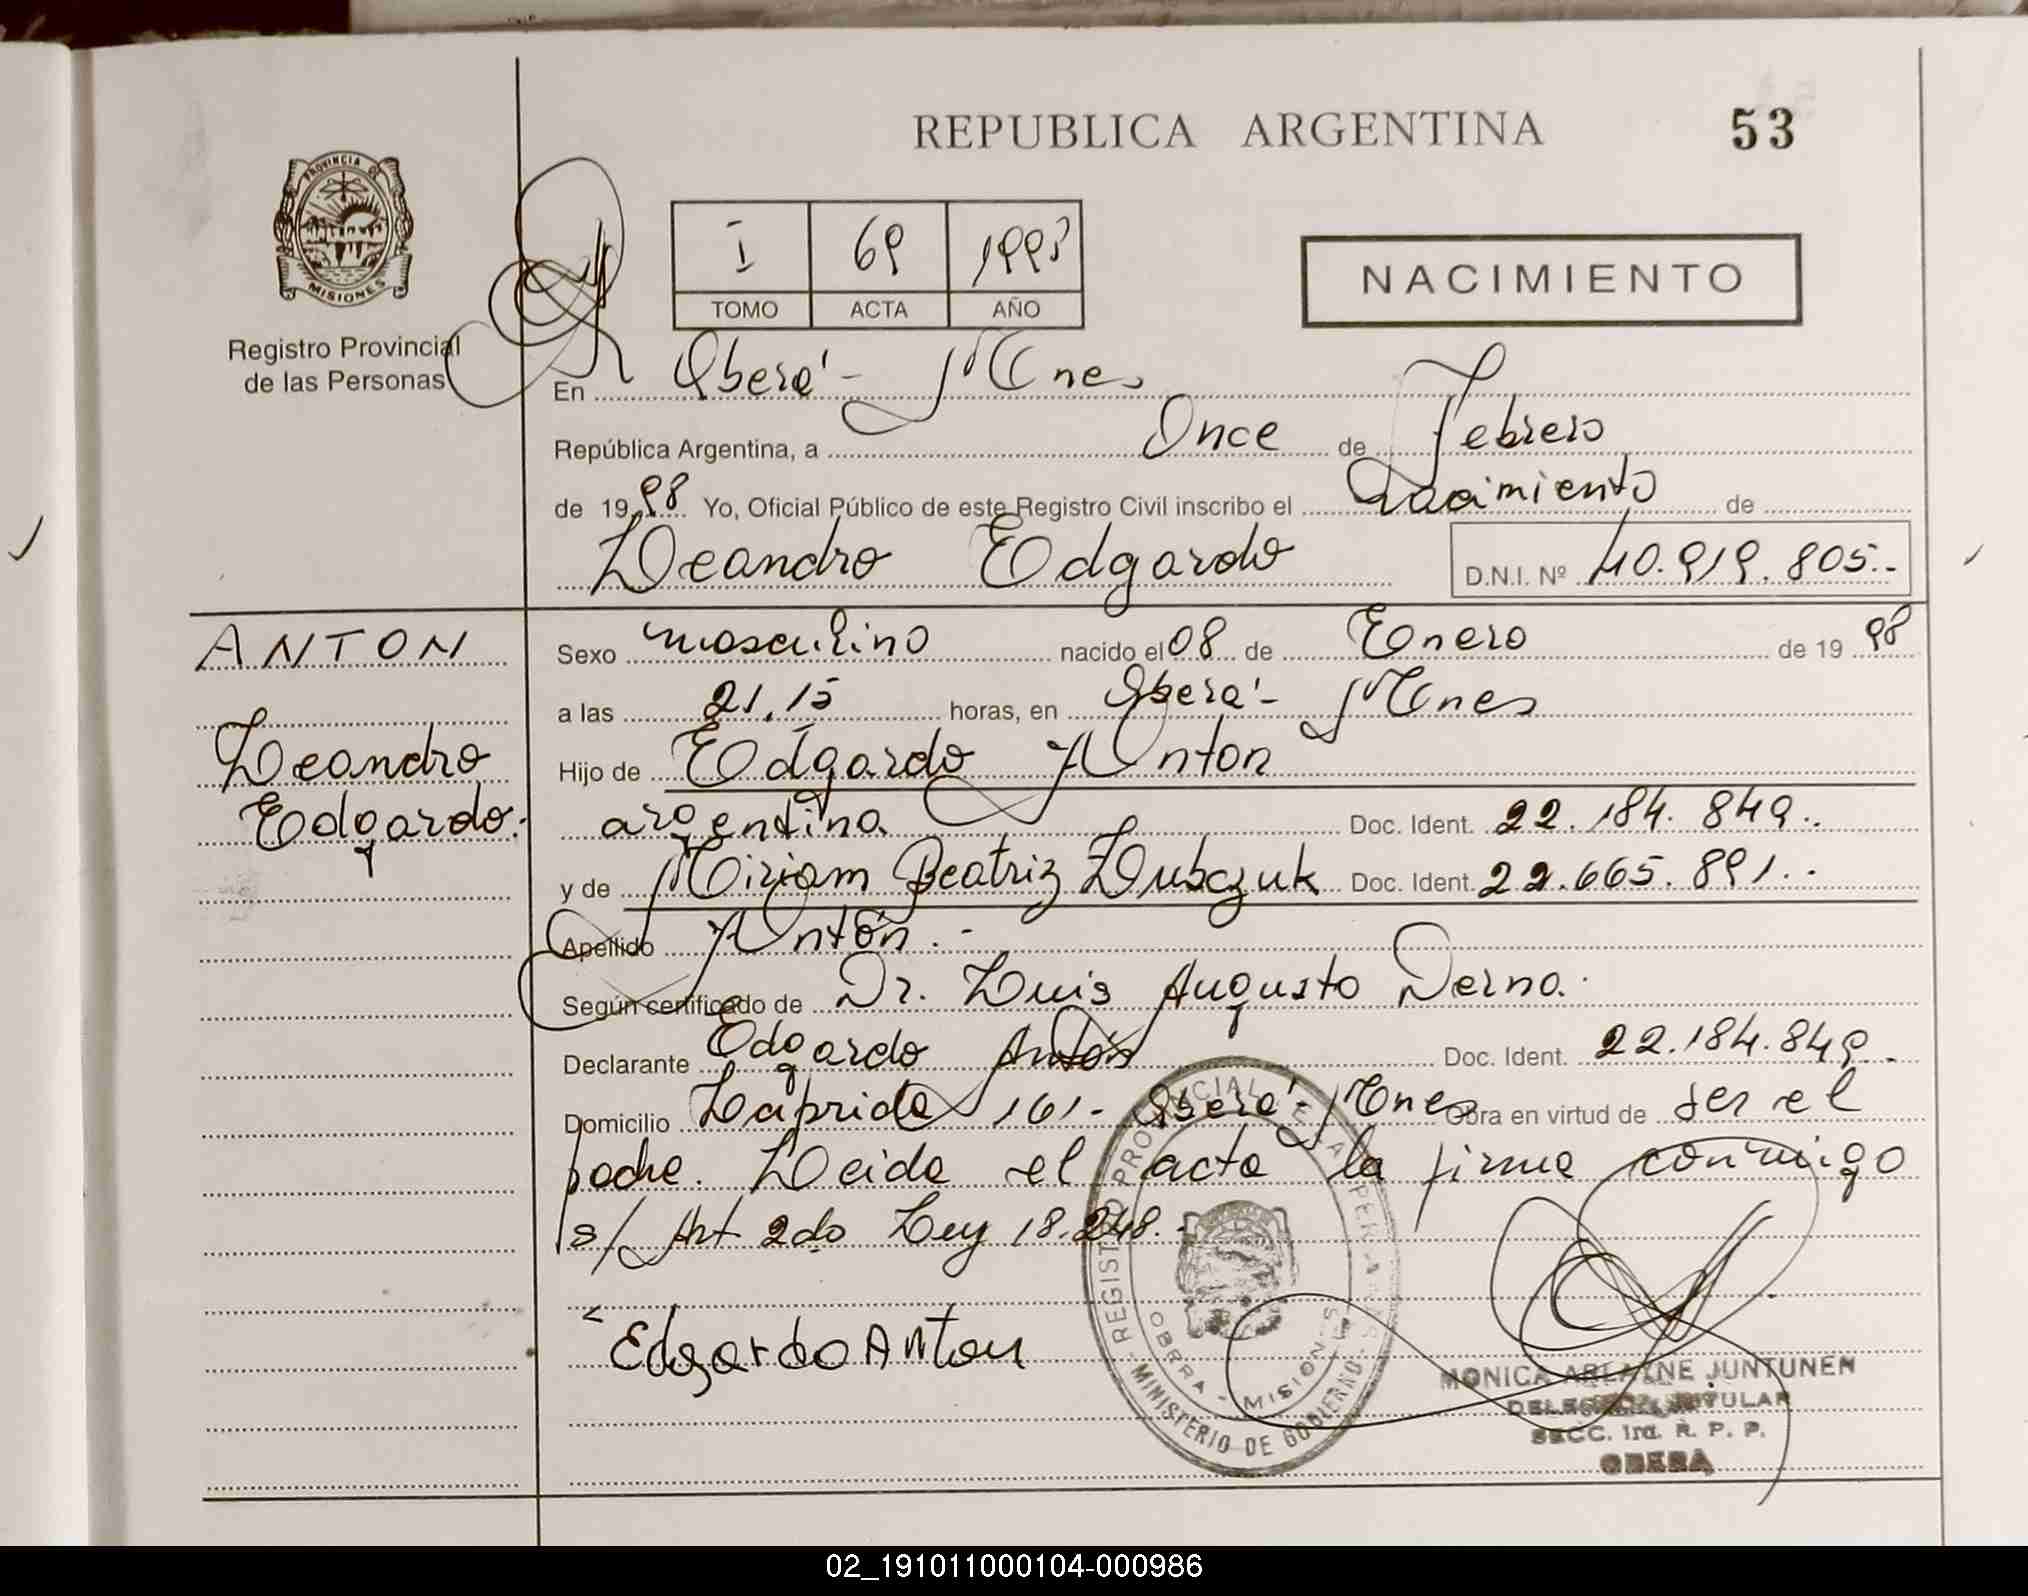 REPUBLICA ARGENTINA
53
PROVINCIA DE
MISIONES
Registro Provincial
de las Personas
I 69
TOMO ACTA AÑO
NACIMIENTO
En Oberá - Mnes
República Argentina, a Once de Febrero
de 1998 Yo, Oficial Público de este Registro Civil inscribo el Nacimiento de
Leandro Edgardo D.N.I. Nº 40.919.805.-
ANTON
Leandro
Edgardo.-
Sexo masculino nacido el 08 de Enero de 1998
a las 21,15 horas, en Oberá - Mnes
Hijo de Edgardo Anton
argentina Doc. Ident. 22.184.849..
y de Miriam Beatriz Dubczuk Doc. Ident. 22.665.891..
Apellido Antón.-
Según certificado de Dr. Luis Augusto Derna.
Declarante Edgardo Antón Doc. Ident. 22.184.849.
Domicilio Laprida 161 - Oberá - Mnes Obra en virtud de ser el
padre. Leida el acta la firma conmigo
s/ Art 2do Ley 18.248.-
Edgardo Anton
REGISTRO PROVINCIAL DE LAS PERSONAS
MINISTERIO DE GOBIERNO
OBERA - MISIONES
MONICA ARLAINE JUNTUNEN
TITULAR
SECC. 1ra. R. P. P.
OBERA
02_191011000104-000986